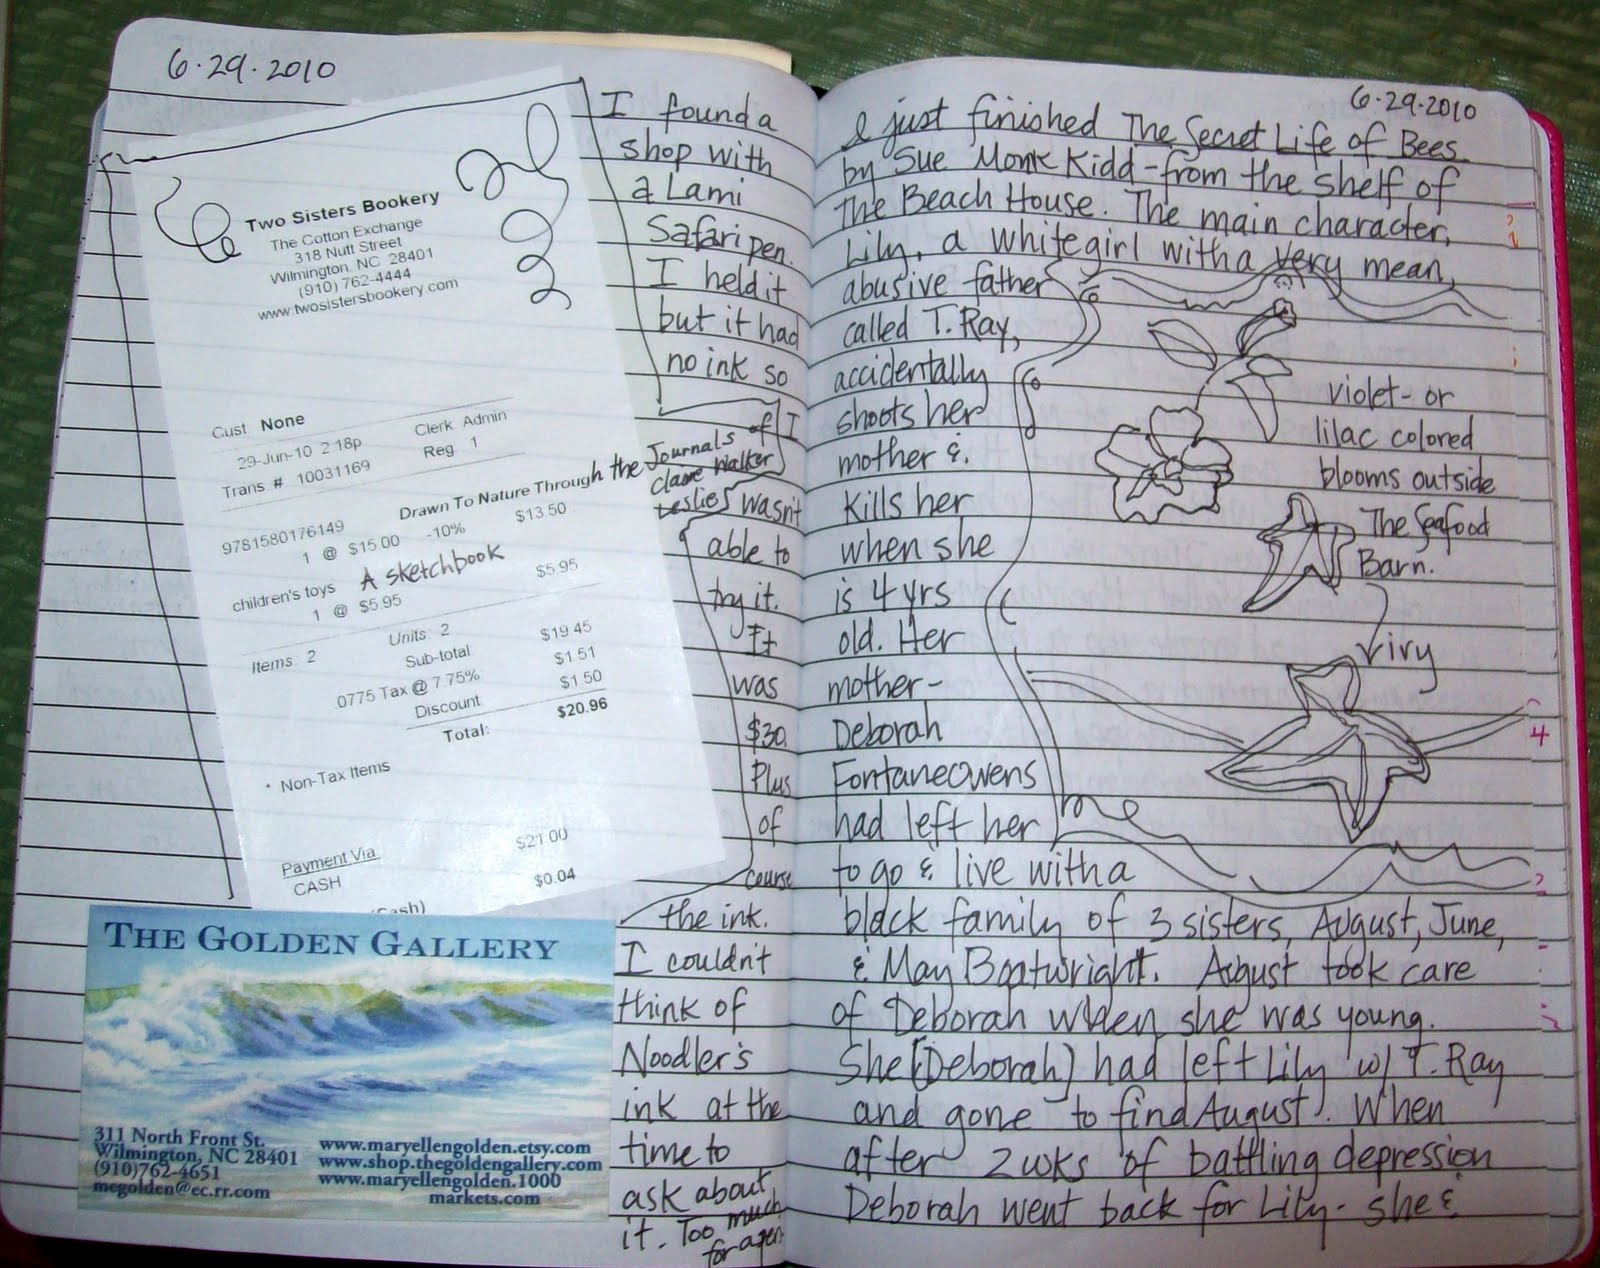 6·29·2010
Two Sisters Bookery
The Cotton Exchange
318 Nutt Street
Wilmington, NC 28401
(910) 762-4444
www.twosistersbookery.com
Cust None
29-Jun-10 2:18p Clerk Admin
Trans # 10031169 Reg 1
Drawn To Nature Through the Journals of
Clare Walker
Leslie
9781580176149
1 @ $15.00 -10% $13.50
children's toys A sketchbook
1 @ $5.95 $5.95
Items 2 Units 2
Sub-total $19.45
0775 Tax @ 7.75% $1.51
Discount $1.50
Total: $20.96
* Non-Tax Items
Payment Via
CASH $21.00
$0.04
THE GOLDEN GALLERY
311 North Front St.
Wilmington, NC 28401
(910)762-4651
megolden@ec.rr.com
www.maryellengolden.etsy.com
www.shop.thegoldengallery.com
www.maryellengolden.1000
markets.com
I found a
shop with
a Lami
Safari pen.
I held it
but it had
no ink so
I
wasn't
able to
try it.
It
was
$30.
Plus
of
course
the ink.
I couldn't
think of
Noodler's
ink at the
time to
ask about
it. Too much
for a pen
6·29·2010
I just finished The Secret Life of Bees
by Sue Monk Kidd - from the shelf of
The Beach House. The main character,
Lily, a white girl with a very mean,
abusive father
called T. Ray,
accidentally
shoots her
mother &
kills her
when she
is 4 yrs
old. Her
mother-
Deborah
Fontaneowens
had left her
to go & live with a
black family of 3 sisters, August, June,
& May Boatwright. August took care
of Deborah when she was young.
She [Deborah] had left Lily w/ T. Ray
and gone to find August. When
after 2 wks of battling depression
Deborah went back for Lily- she &
violet- or
lilac colored
blooms outside
The Seafood
Barn.
Viry
4